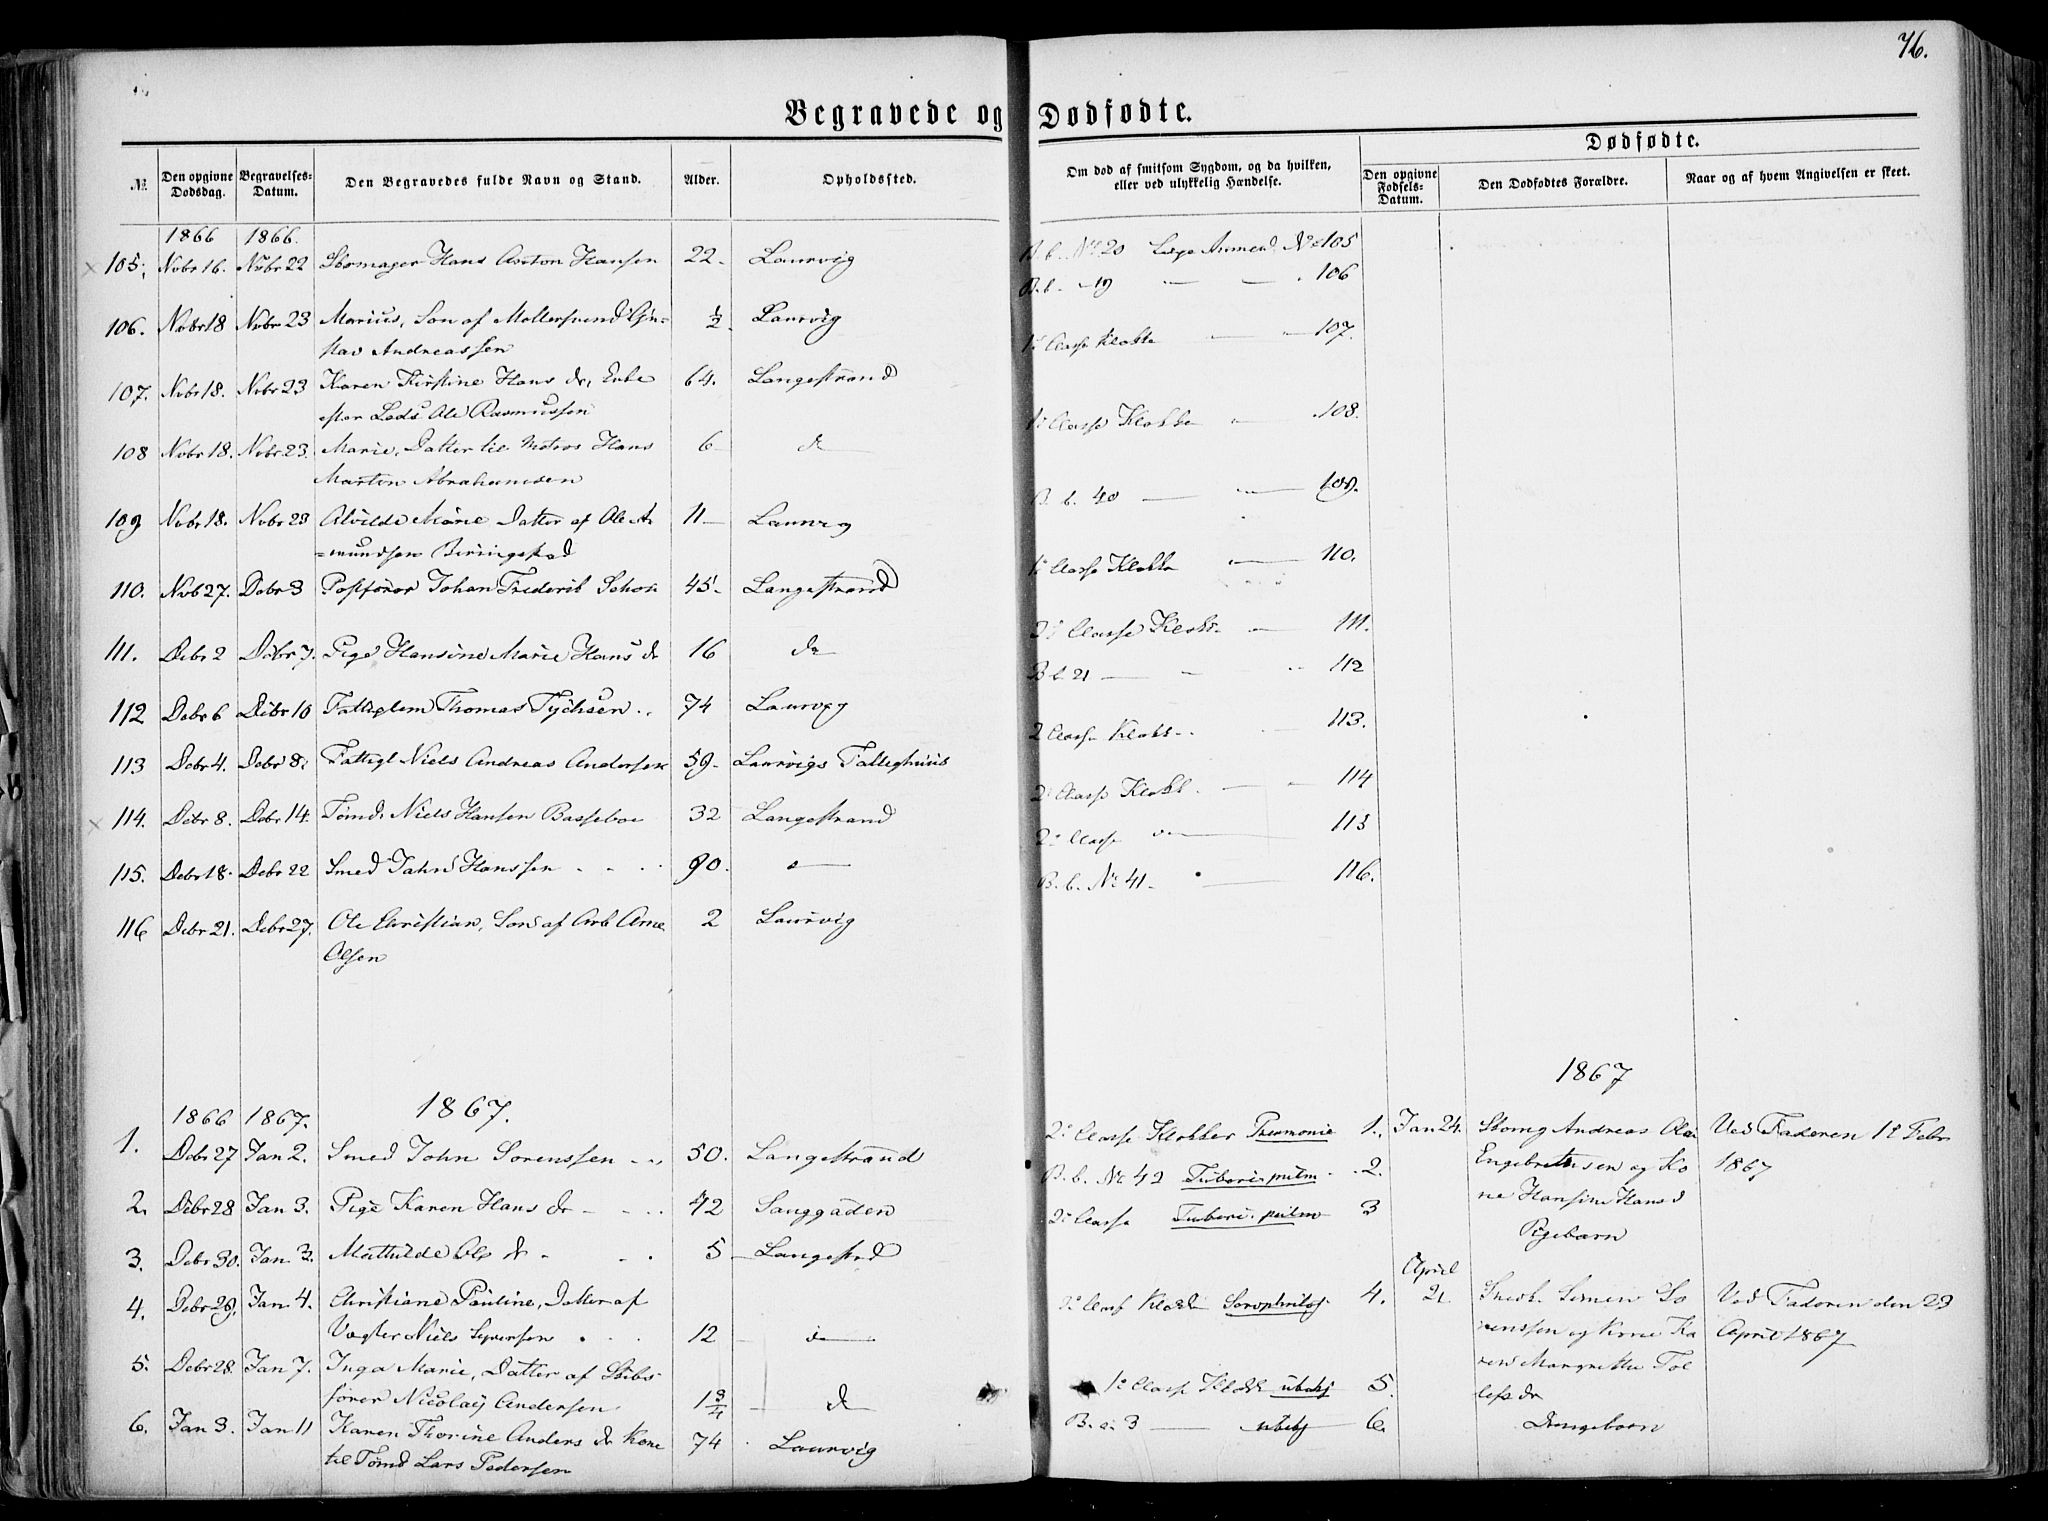 76.
Begravede og Dødfødte.
№
Den opgivne Dødsdag.
Begravelses-Datum.
Den Begravedes fulde Navn og Stand.
Alder.
Opholdssted.
Om død af smitsom Sygdom, og da hvilken, eller ved ulykkelig Hændelse.
Dødfødte.
Den opgivne Fødsels-Datum.
Den Dødfødtes Forældre.
Naar og af hvem Angivelsen er skeet.
1866 1866.
105. Nvbr 16. Nvbr 22 Skomager Hans Anton Hansen 22 - Laurvig B.b. No 20 No 105
106. Nvbr 18 Nvbr 23 Marius, Søn af Møllersvend Gu= ½ - Laurvig B.b. - 19 — 106
stav Andreassen
107. Nvbr 18. Nvbr 23 Karen Kirstine Hans dr, Enke 64. Langestrand 1ste Classe Klokke — 107.
efter Lods Ole Rasmussen
108 Nvbr 18. Nvbr 23. Marie, Datter til Matros Hans 6 — do 1ste Classe Klokke — 108.
Martin Abrahamsen
109 Nvbr 18. Nvbr 23 Alvilde Marie Datter af Ole A 11 — Laurvig B. b. 40 — 109.
=mundsen Berringstad
110. Nvb 27. Dcbr 3 Postfører Johan Frederik Schou 45 - Langestrand 1ste Classe Klokke — 110.
111. Dcbr 2 Dcbr 7. Pige Hansine Marie Hans dr 16 do 2de Classe Klokk. — 111.
112 Dcbr 6 Dcbr 10 Fattiglem Thomas Tychsen 74 Laurvig B b. 21 — 112
113 Dcbr 4. Dcbr 8. Fattigl Niels Andreas Andersen 59 - Laurvigs Fattighuus 2 Classe Klokk - 113.
114. Dcbr 8. Dcbr 14. Tømd. Niels Hansen Basseboe 32 Langestrand 2de Classe Klokk. — 114
115. Dcbr 18. Dcbr 22 Smed John Hanssen 90. — 2de Classe — 115
116 Dcbr 21. Dcbr 27. Ole Christian, Søn af Arb Arne 2 Laurvig B. b. No 41 - — 116.
Olsen
1867. 1867
1866 1867.
1. Dcbr 27 Jan 2. Smed John Sørenssen 50. Langestrand 2de Classe Klokker Pneumonie 1. Jan 24. Skomg Andreas Olai Ved Faderen 1ste Febr
Engebrethsen og Ko 1867
2. Dcbr 28 Jan 3. Pige Karen Hans dr 42 Langgaden B. b. No 42 Tuberc. pulm 2.
ne Hansine Hans d
3. Dcbr 30. Jan 3. Mathilde Ols dr 5 — Langestrd 2de Classe Tuberc. pulm 3
Pigebarn
4. Dcbr 29. Jan 4. Christiane Pauline, Datter af 2de Class Klokk 4. April 21. Simen So Ved Faderen den 23
Vægter Niels Syversen 12 do
renssen og Kone Ka April 1867
5. Dcbr 28. Jan 7. Inga Marie, Datter af Skibs
ren Margrethe Tol
fører Nicolay Andersen 1¾ do 1ste Classe Klokk ubekj 5.
lefs dr
6. Jan 3. Jan 11 Karen Thorine Anders dr Kone 74 Laurvig B. a. 3 — ubekj 6.
Drengebarn
til Tømd Lars Pedersen